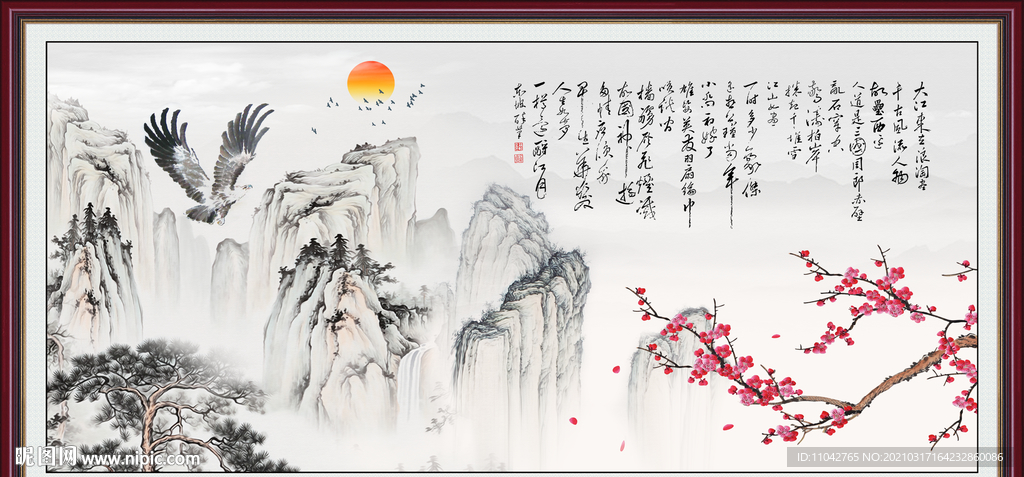 大江東去浪淘尽
千古風流人物
故壘西邊
人道是三國周郎赤壁
亂石穿空
驚濤拍岸
捲起千堆雪
江山如畫
一时多少豪傑
遙想公瑾當年
小喬初嫁了
雄姿英发羽扇綸巾
談笑间
檣櫓灰飛煙滅
故國神遊
多情應笑我
早生華髮
人生如夢
一樽還酹江月
东坡
昵图网 www.nipic.com
ID:11042765 NO:20210317164232860086